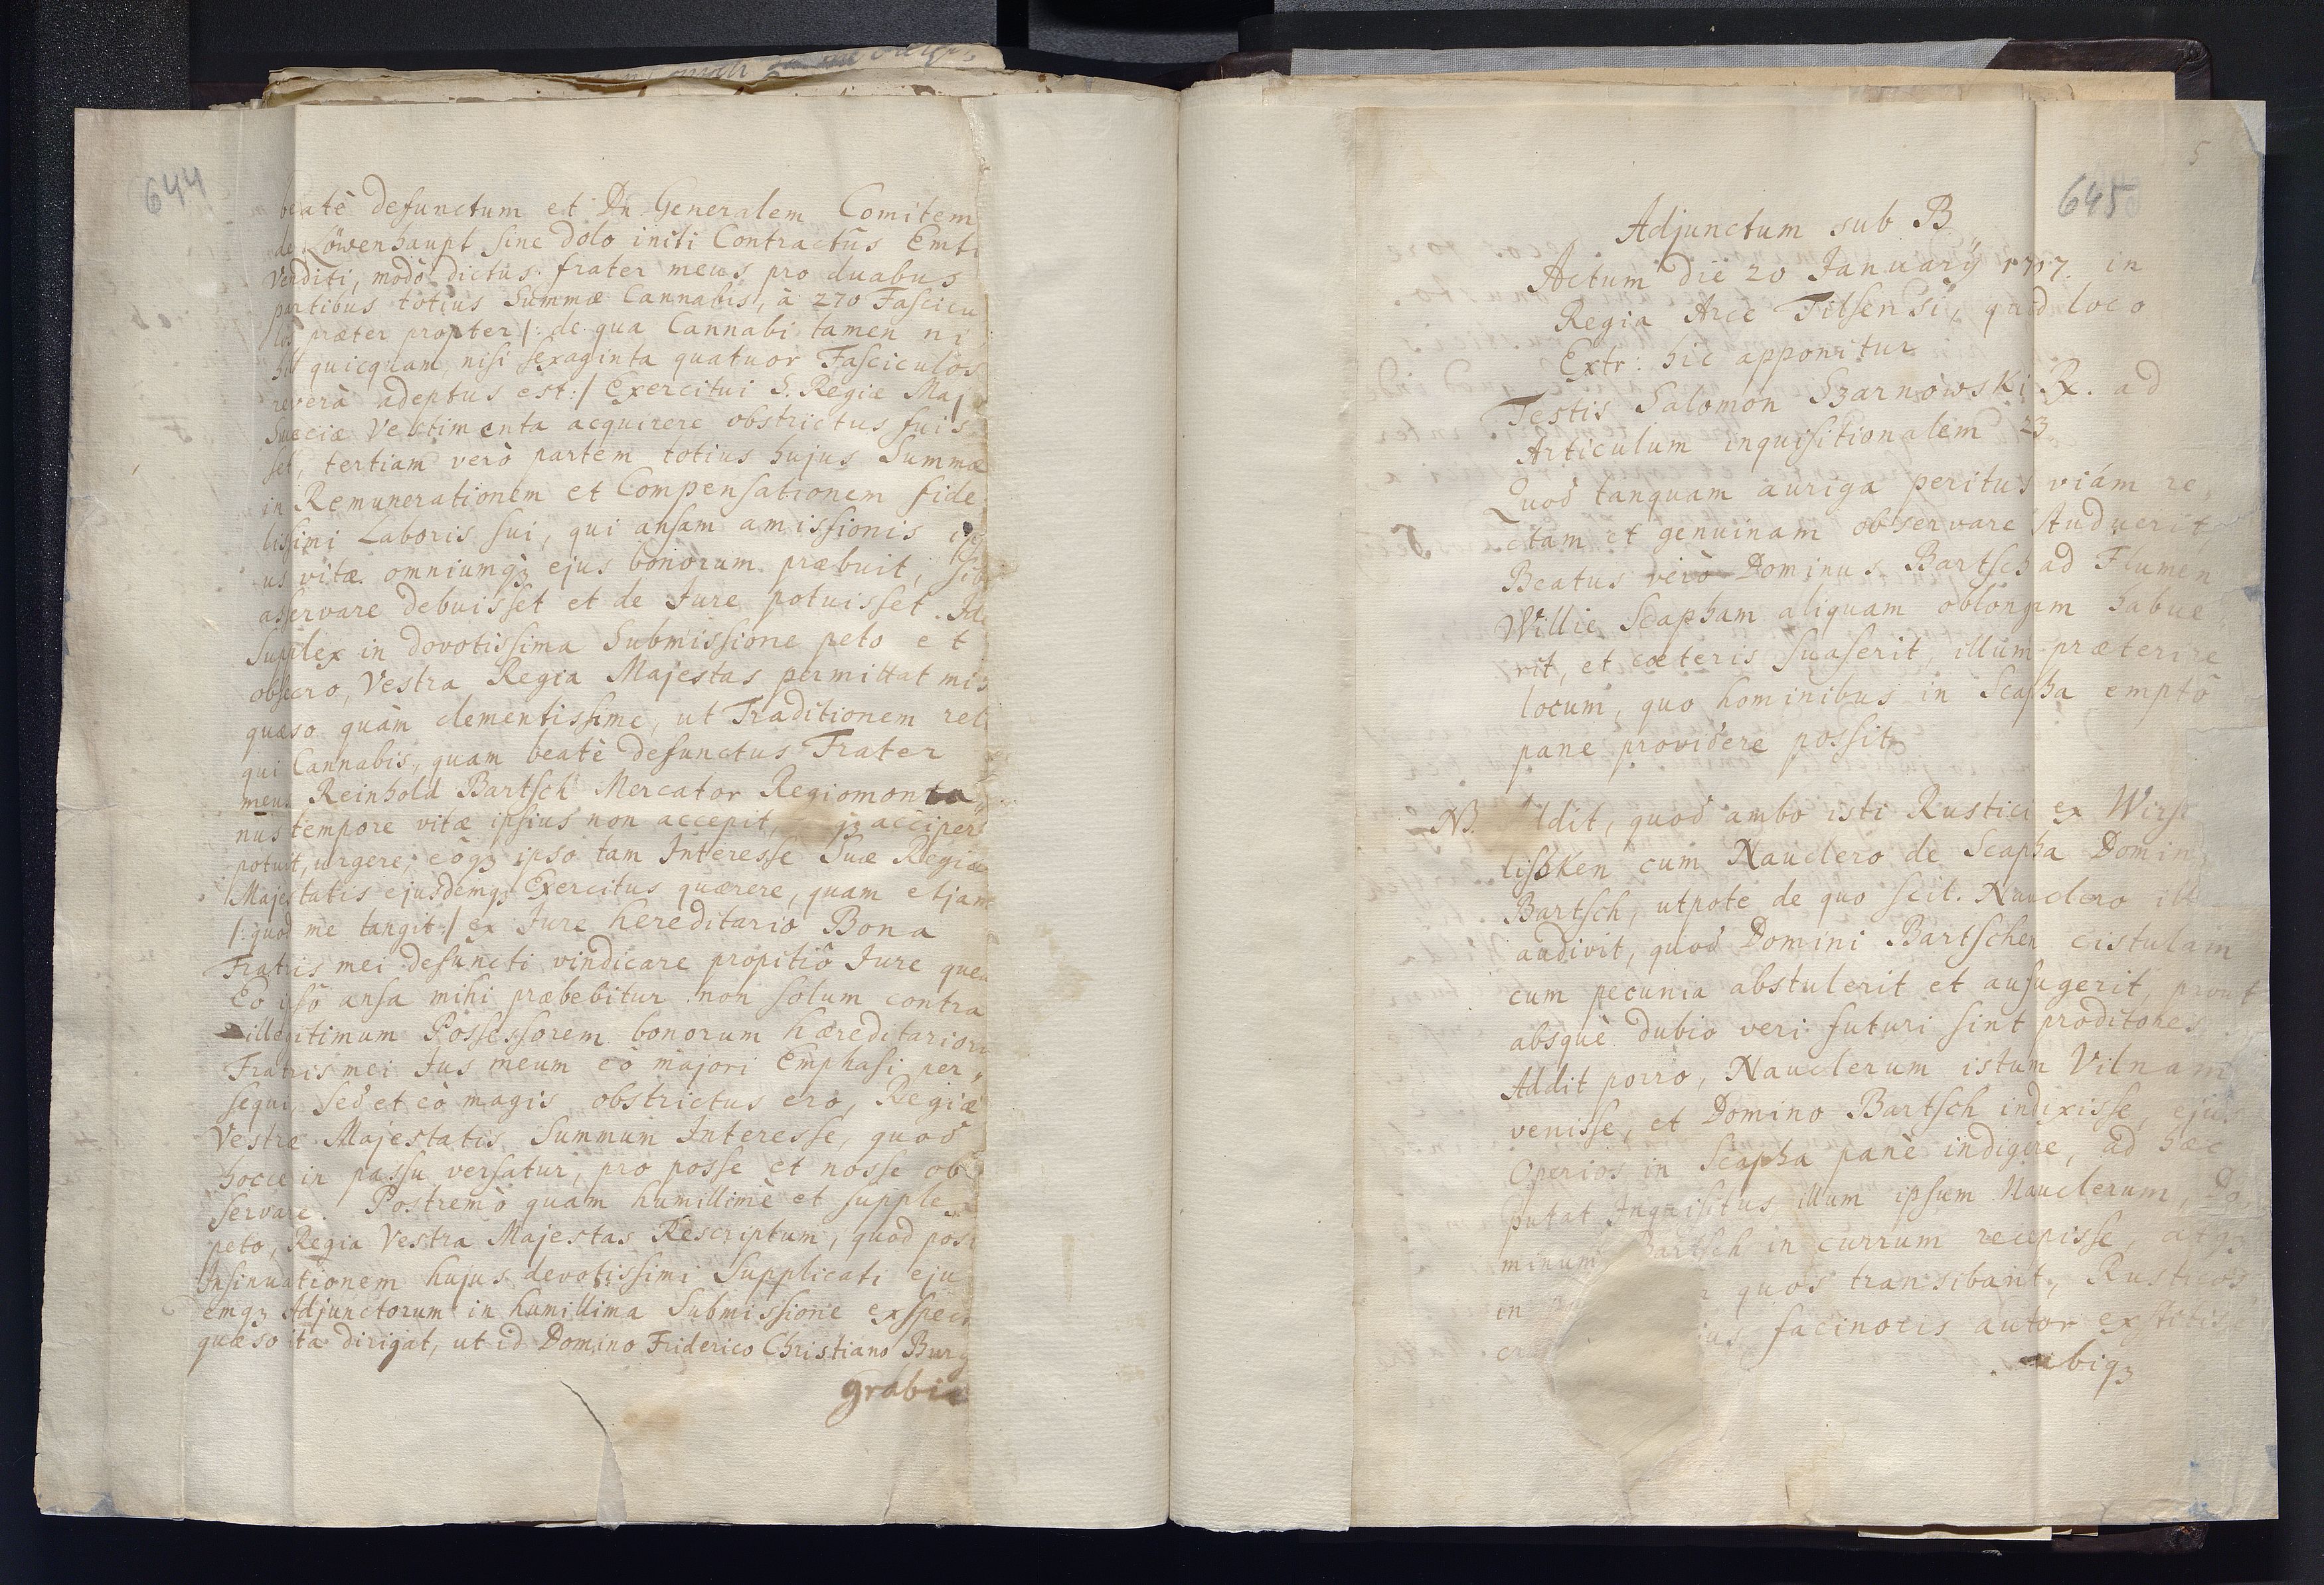 644
beatè defunctum et Dn Generalem Comitem
de Löwenhaupt sine dolo initi Contractûs Emti
Venditi, modò dictus frater meus pro duabus
partibus totius Summæ Cannabis, à 270 Fascicu
los præter propter /: de qua Cannabi tamen ni
hil quicquam nisi sexaginta quatuor Fasciculos
reverà adeptus est :/ Exercitui S. Regiæ Maj
Sueciæ Vestimenta acquirere obstrictus fuis
set, tertiam verò partem totius hujus Summæ
in Remunerationem et Compensationem fide
lissimi Laboris sui, qui ansam amissionis
us vitæ omniumqȝ ejus bonorum præbuit, sib
asservare debuisset et de Jure potuisset.
Supplex in dovotissima Submissione peto et
obsecro, Vestra Regia Majestas permittat mih
quæso quàm clementissimè, ut Traditionem reli
qui Cannabis, quam beatè defunctus Frater
meus Reinhold Bartsch Mercator Regiomonta„
nus tempore vitæ ipsius non accepit, qȝ accipere
potuit, urgere; eôqȝ ipso tam Interesse Suæ Regiæ
Majestatis ejusdemqȝ Exercitus quærere, quam etjam
/: quod me tangit :/ ex Jure hereditario Bona
Fratris mei defuncti vindicare propitiô Jure quea
Eô ipsô ansa mihi præbebitur non solum contra
illegitimum Possessorem bonorum hæreditarior
Fratris mei Jus meum eò majori Emphasi per„
sequi, Sed et eò magis obstrictus ero, Regiæ
Vestræ Majestatis Summum Interesse, quod
hocce in passu versatur, pro posse et nosse ob
servare. Postremò quam humillimè et supplex
peto, Regia Vestra Majestas Rescriptum, quod post
Insinuationem hujus devotissimi Supplicati eju
emqȝ Adjunctorum in humillima Submissione exspect
quæso ita dirigat, ut id Domino Friderico Christiano Burg
grabio
5
645
Adjunctum sub B.
Actum die 20 Januarÿ 1707. in
Regia Arce Tilsensi, quod loco
Extr: hic apponitur
Testis Salomon Szarnowski Rx. ad
Articulum inquisitionalem 23
Quod tanquam auriga peritus viam re„
ctam et genuinam observare studuerit,
Beatus verò Dominus Bartsch ad Flumen
Willie Scapham aliquam oblongam habue
rit, et cœteris suaserit, illum præterire
locum, quo hominibus in Scapha emptô
pane providere possit
NB. ddit, quod ambo isti Rustici ex Wirsp
lischken cum Nauclero de Scapha Domin
Bartsch, utpote de quo scil. Nauclero
audivit, quod Domini Bartschen cistulam
cum pecunia abstulerit et aufugerit, prout
absque dubio veri futuri sint proditores.
Addit porro, Nauclerum istum Vilnam
venisse, et Domino Bartsch indixisse, ejus
Operios in Scapha panè indigere, ad hæc
putat Inquisitus illum ipsum Nauclerum, Do
minum Bartsch in currum recepisse, atqȝ
in quos transibant, Rusticos
ius facinoris autor extitisse
ubiqȝ